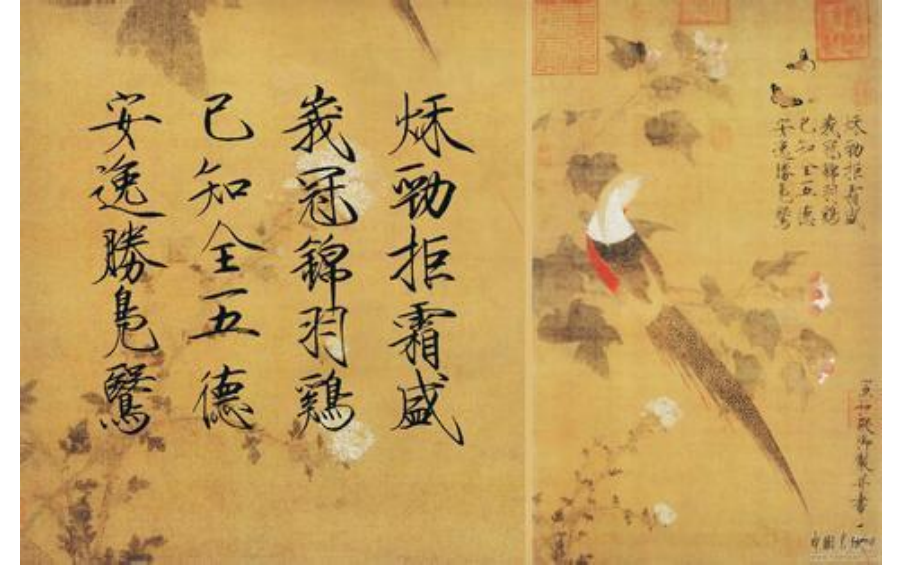 秌勁拒霜盛
峩冠錦羽鷄
已知全五德
安逸勝鳬鷖
秌勁拒霜盛
峩冠錦羽鷄
已知全五德
安逸勝鳬鷖
宣和殿御製并書